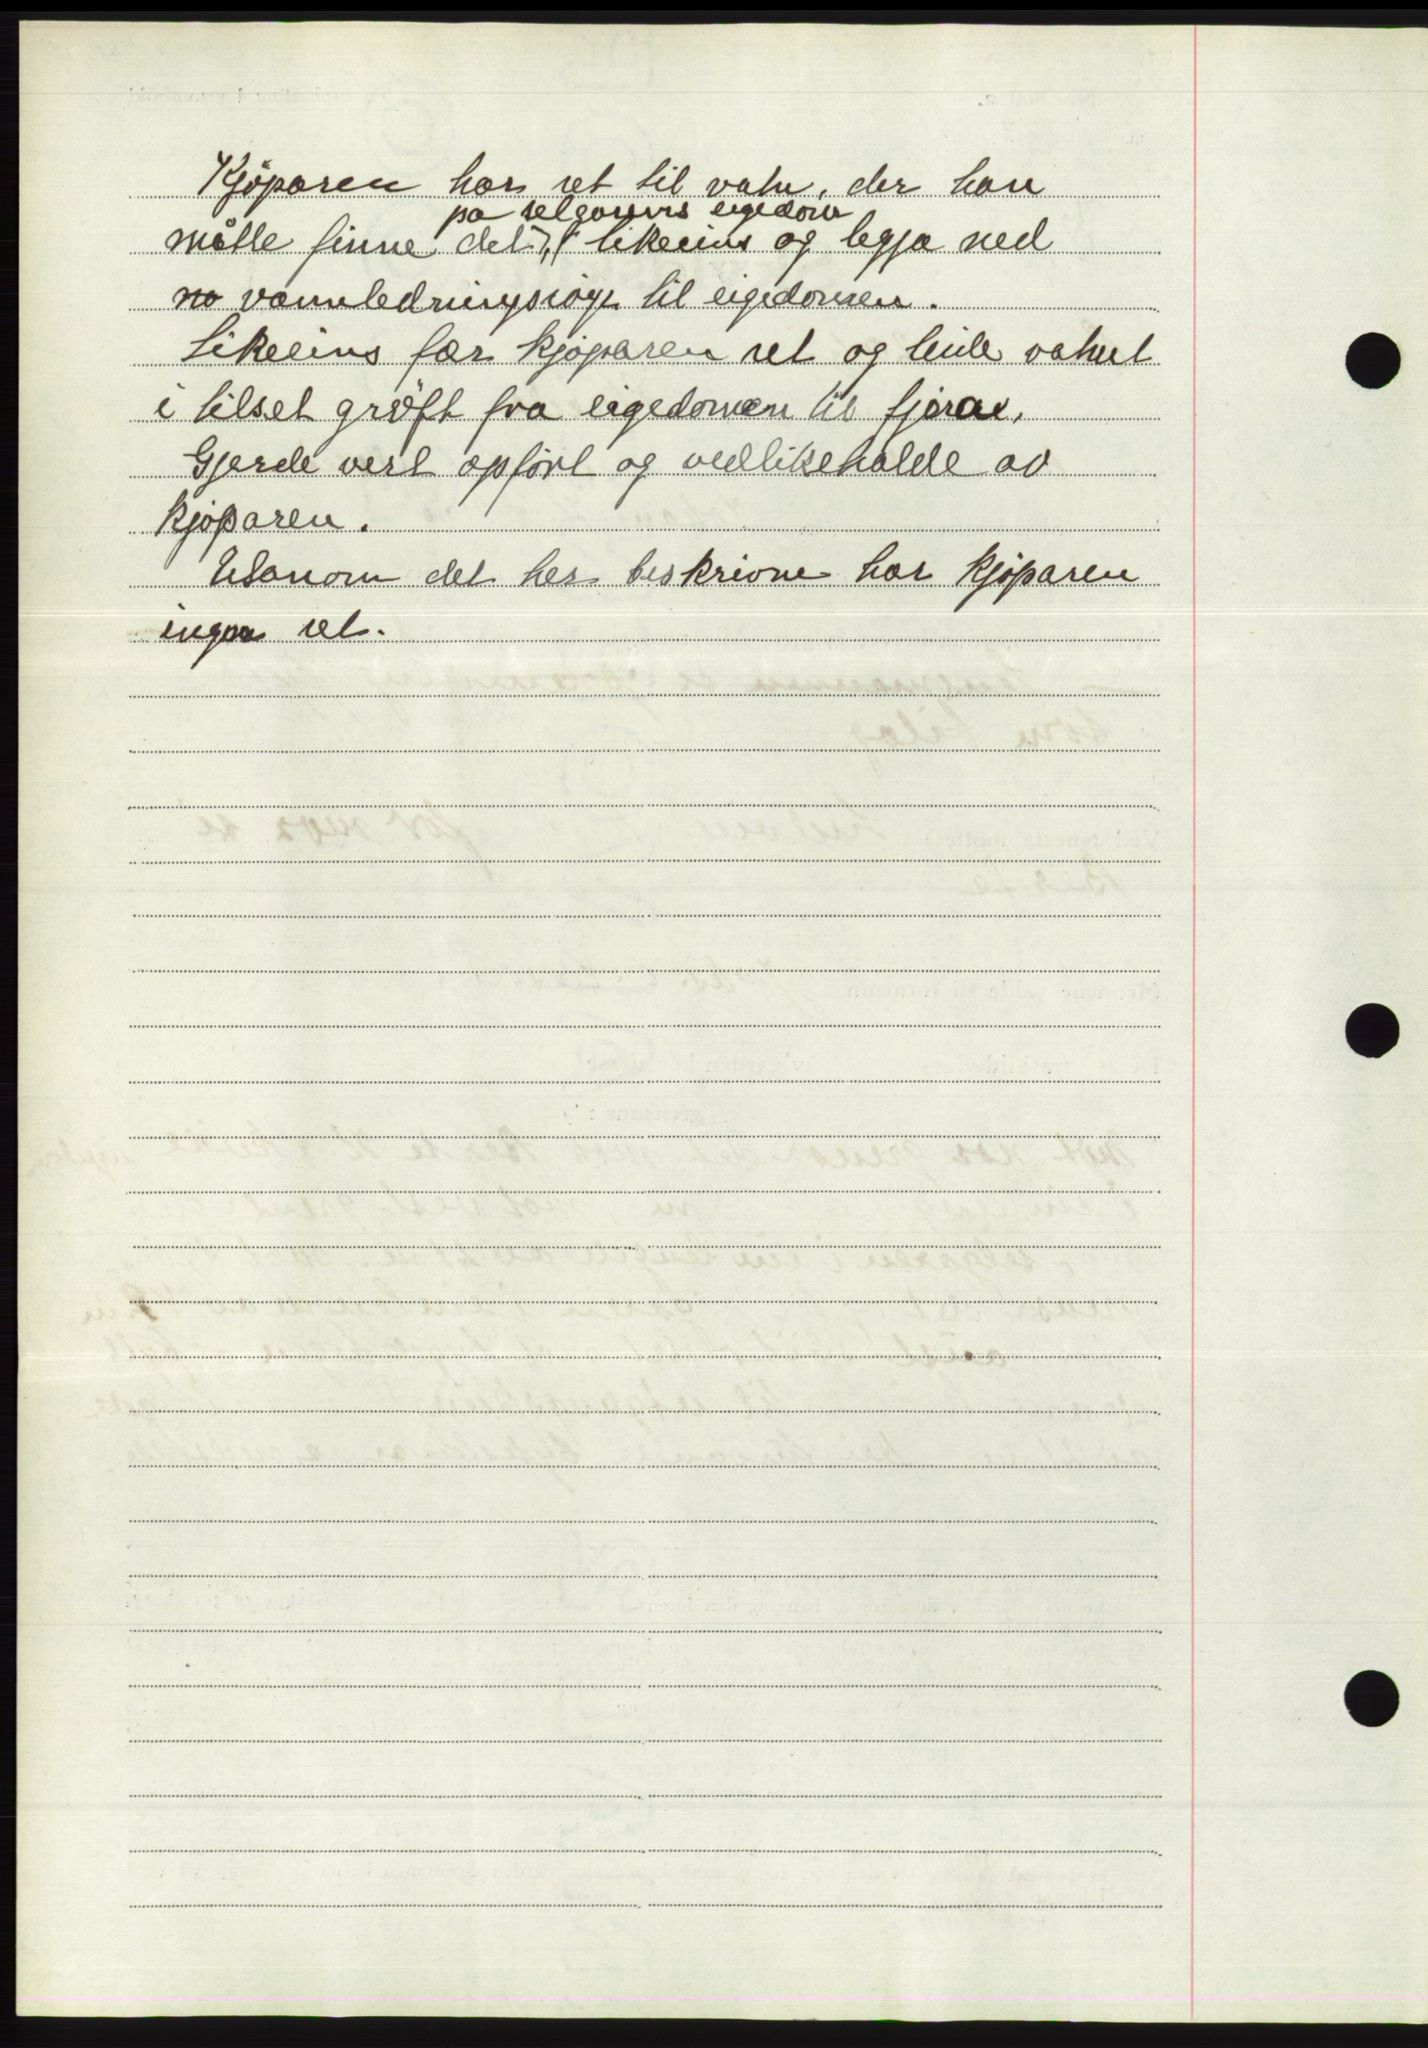 Kjøparen har ret til vatn, der han
måtte finne det, på selgarens eigedom likeeins og legja ned
vannledningsrøyr til eigedomen.
Likeeins fær kjøparen ret og leide vatnet
i tilset grøft fra eigedomen til fjøra.
Gjerde vert opført og vedlikeholde av
kjøparen.
Utanom det her beskrivne har kjøparen
ingen ret.